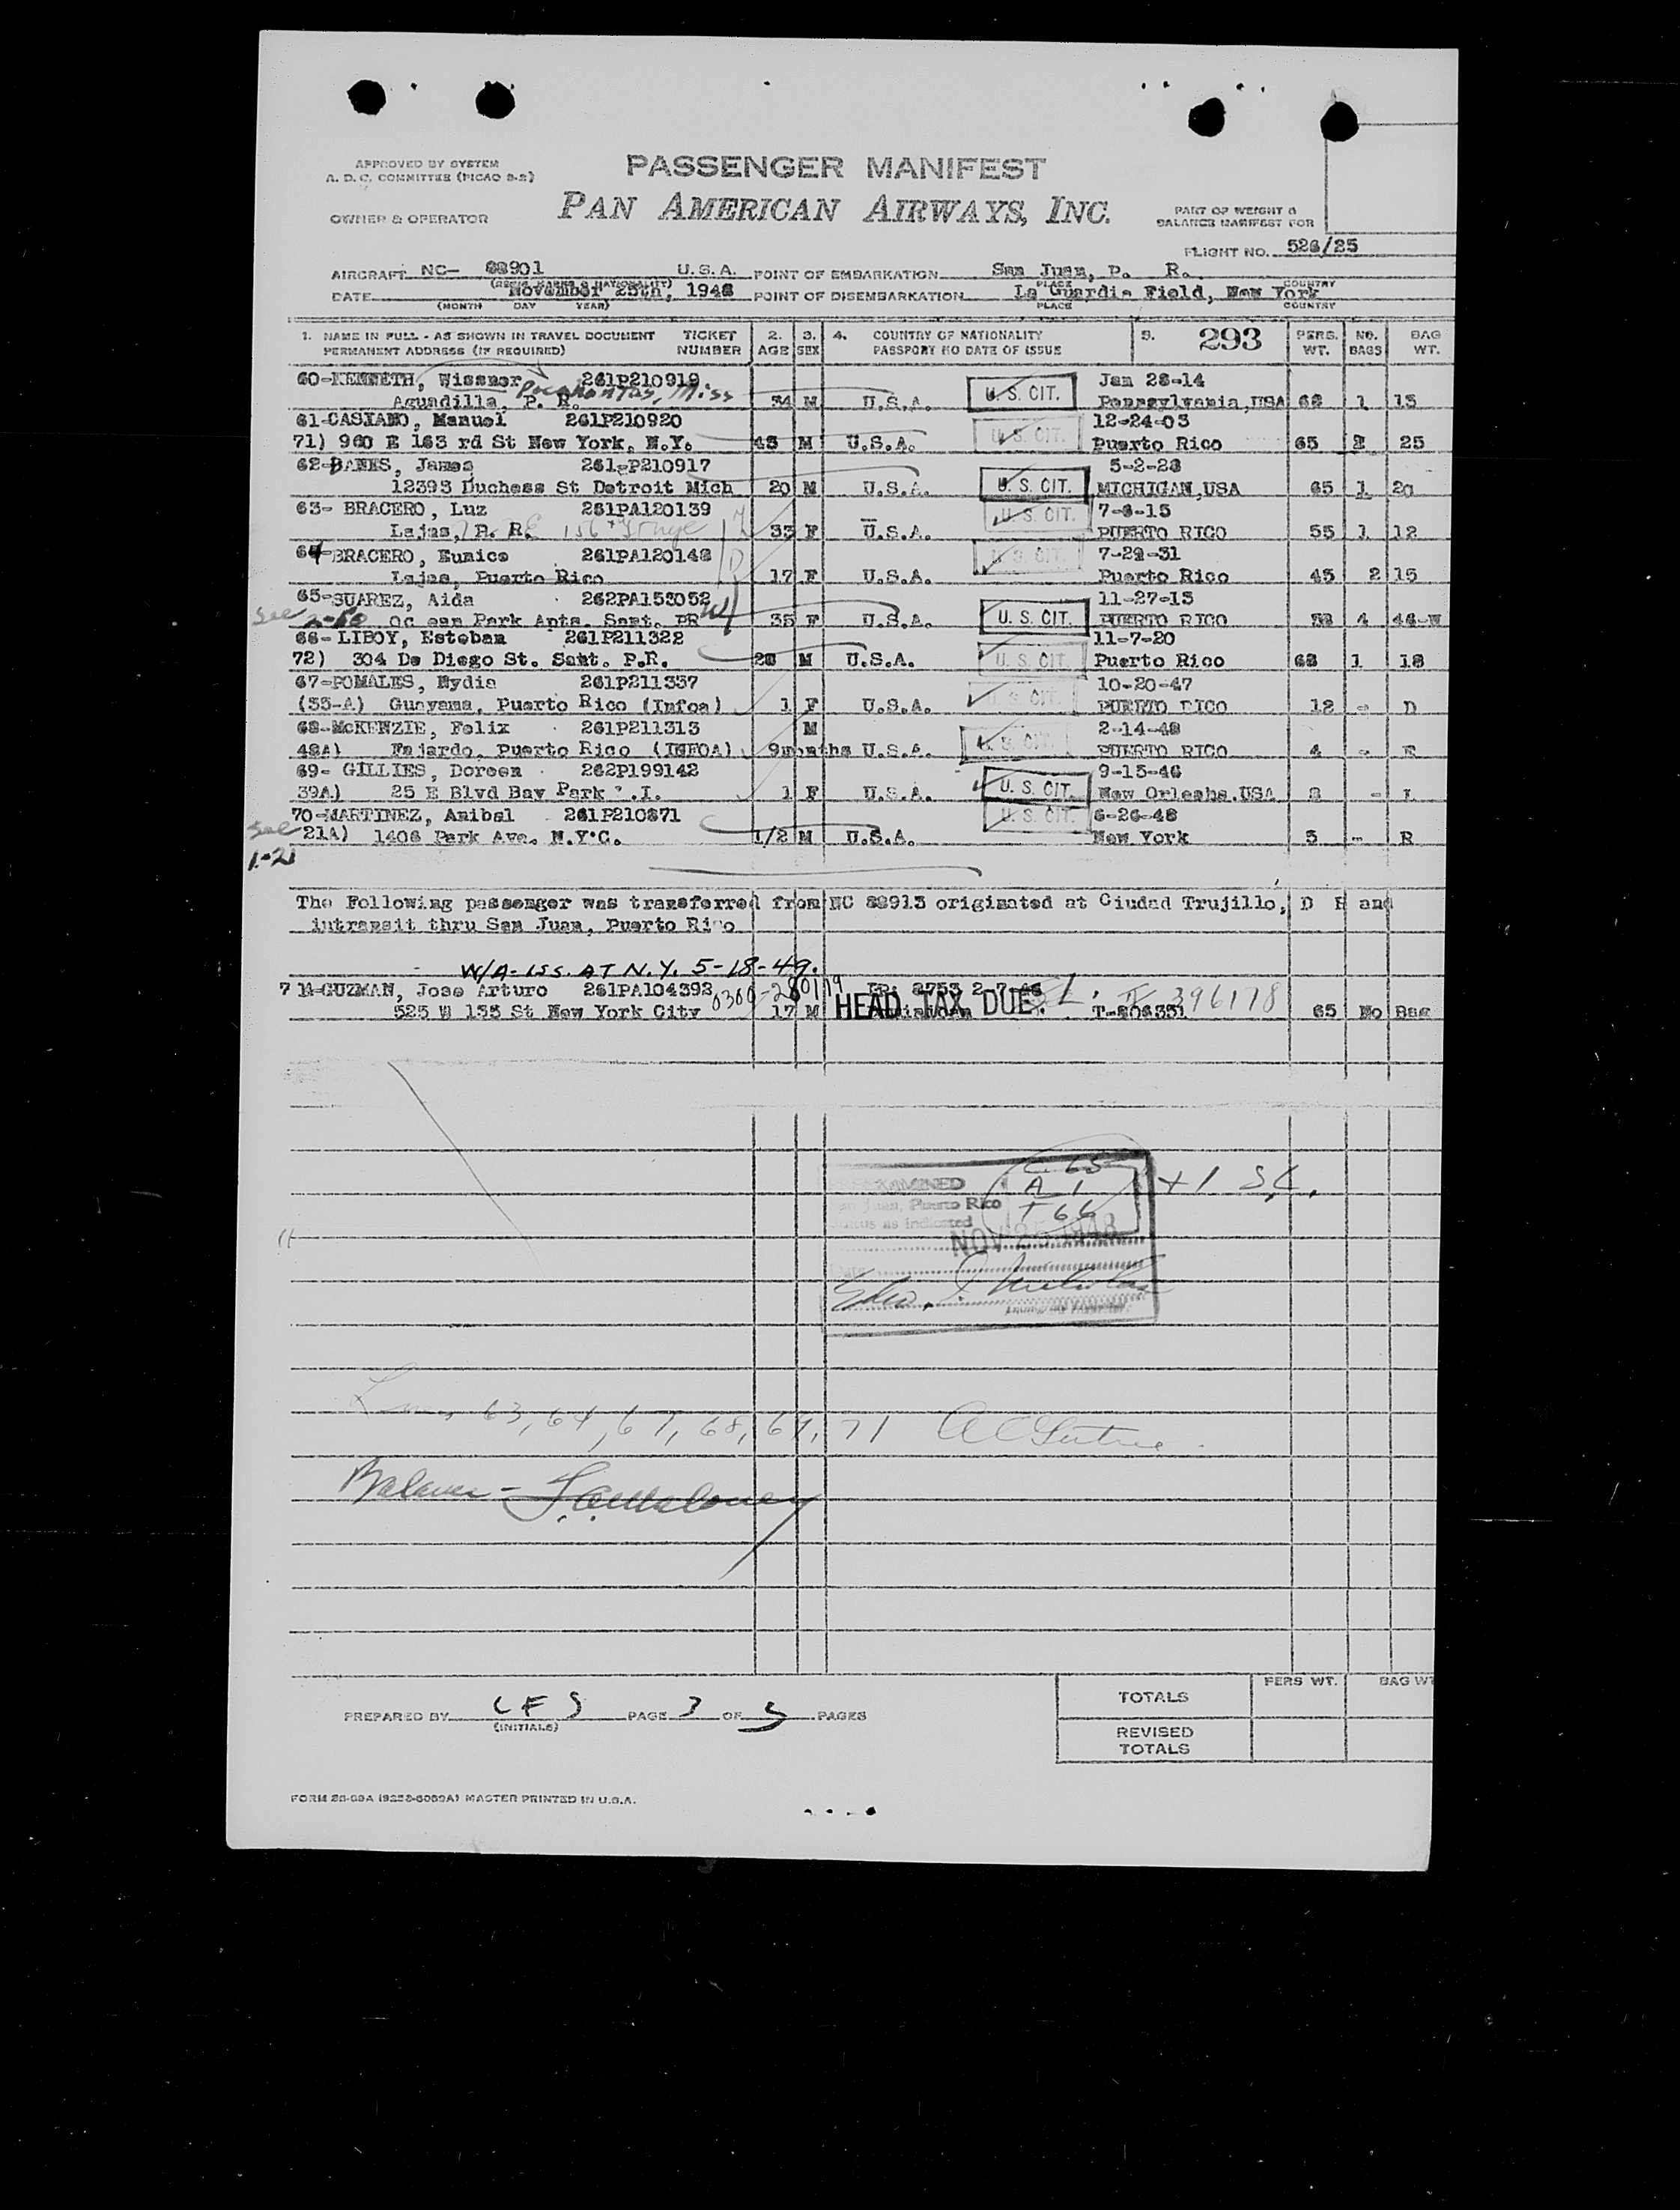 APPROVED BY SYSTEM
A. D. C. COMMITTEE (PICAO S-2)
PASSENGER MANIFEST
OWNER & OPERATOR
PAN AMERICAN AIRWAYS, INC.
PART OF WEIGHT &
BALANCE MANIFEST FOR
FLIGHT NO. 526/25
AIRCRAFT NC- 88901 U.S.A. POINT OF EMBARKATION San Juan, P. R.
(REGIS. MARKS & NATIONALITY) PLACE COUNTRY
DATE November 25th, 1948 POINT OF DISEMBARKATION La Guardia Field, New York
(MONTH DAY YEAR) PLACE COUNTRY
1. NAME IN FULL - AS SHOWN IN TRAVEL DOCUMENT TICKET 2. 3. 4. COUNTRY OF NATIONALITY 5. 293 PERS. NO. BAG
PERMANENT ADDRESS (IF REQUIRED) NUMBER AGE SEX PASSPORT NO DATE OF ISSUE WT. BAGS WT.
60-KENNETH, Wissner 261P210919 U. S. CIT. Jan 28-14
Pocahontas, Miss
Aguadilla, P. R. 34 M U.S.A. Pennsylvania,USA 68 1 13
61-CASIANO, Manuel 261P210920 U. S. CIT. 12-24-03
71) 960 E 163 rd St New York, N.Y. 45 M U.S.A. Puerto Rico 65 25
62-BANKS, James 261-P210917 5-2-28
12393 Duchess St Detroit Mich 20 M U.S.A. U. S. CIT. MICHIGAN,USA 65 1 20
63- BRACERO, Luz 261PA120139 U. S. CIT. 7-8-15
Lajas, P. R. 33 F U.S.A. PUERTO RICO 55 1 12
64-BRACERO, Eunice 261PA120148 U. S. CIT. 7-29-31
Lajas, Puerto Rico 17 F U.S.A. Puerto Rico 45 2 15
65-SUAREZ, Aida 262PA153052 11-27-13
see Oc ean Park Apts. Sant. PR 35 F U.S.A. U. S. CIT. PUERTO RICO 4 44-W
66- LIBOY, Esteban 261P211322 11-7-20
72) 304 De Diego St. Sant. P.R. 28 M U.S.A. U. S. CIT. Puerto Rico 68 1 18
67-POMALES, Nydia 261P211337 U. S. CIT. 10-20-47
(55-A) Guayama, Puerto Rico (Infoa) 1 F U.S.A. PUERTO RICO 12 - D
68-McKENZIE, Felix 261P211313 M U. S. CIT. 2-14-48
48A) Fajardo, Puerto Rico (INFOA) 9months U.S.A. PUERTO RICO 4 - E
69- GILLIES, Doreen 262P199142 U. S. CIT. 9-15-46
39A) 25 E Blvd Bay Park 1 F U.S.A. New Orleans,USA - L
70-MARTINEZ, Anibal 261P210871 U. S. CIT. 6-26-48
see 21A) 1406 Park Ave. N.Y.C. 1/2 M U.S.A. New York 5 - R
1-21
The Following passenger was transferred from NC 88913 originated at Ciudad Trujillo, D R and
intransit thru San Juan, Puerto Rico
W/A-ISS. AT N.Y. 5-18-49.
71-GUZMAN, Jose Arturo 261PA104392 0300-280119
525 W 155 St New York City 17 M HEAD TAX DUE. 396178 65 No Bag
C 65
EXAMINED A 1 +1 S.C.
San Juan, Puerto Rico T 66
Status as indicated
NOV 25 1948
Lines 63, 64, 67, 68, 69, 71
Balance -
PREPARED BY CFS PAGE 3 OF 5 PAGES
(INITIALS)
PERS WT. BAG WT
TOTALS
REVISED
TOTALS
FORM 28-69A (9258-6089A) MASTER PRINTED IN U.S.A.